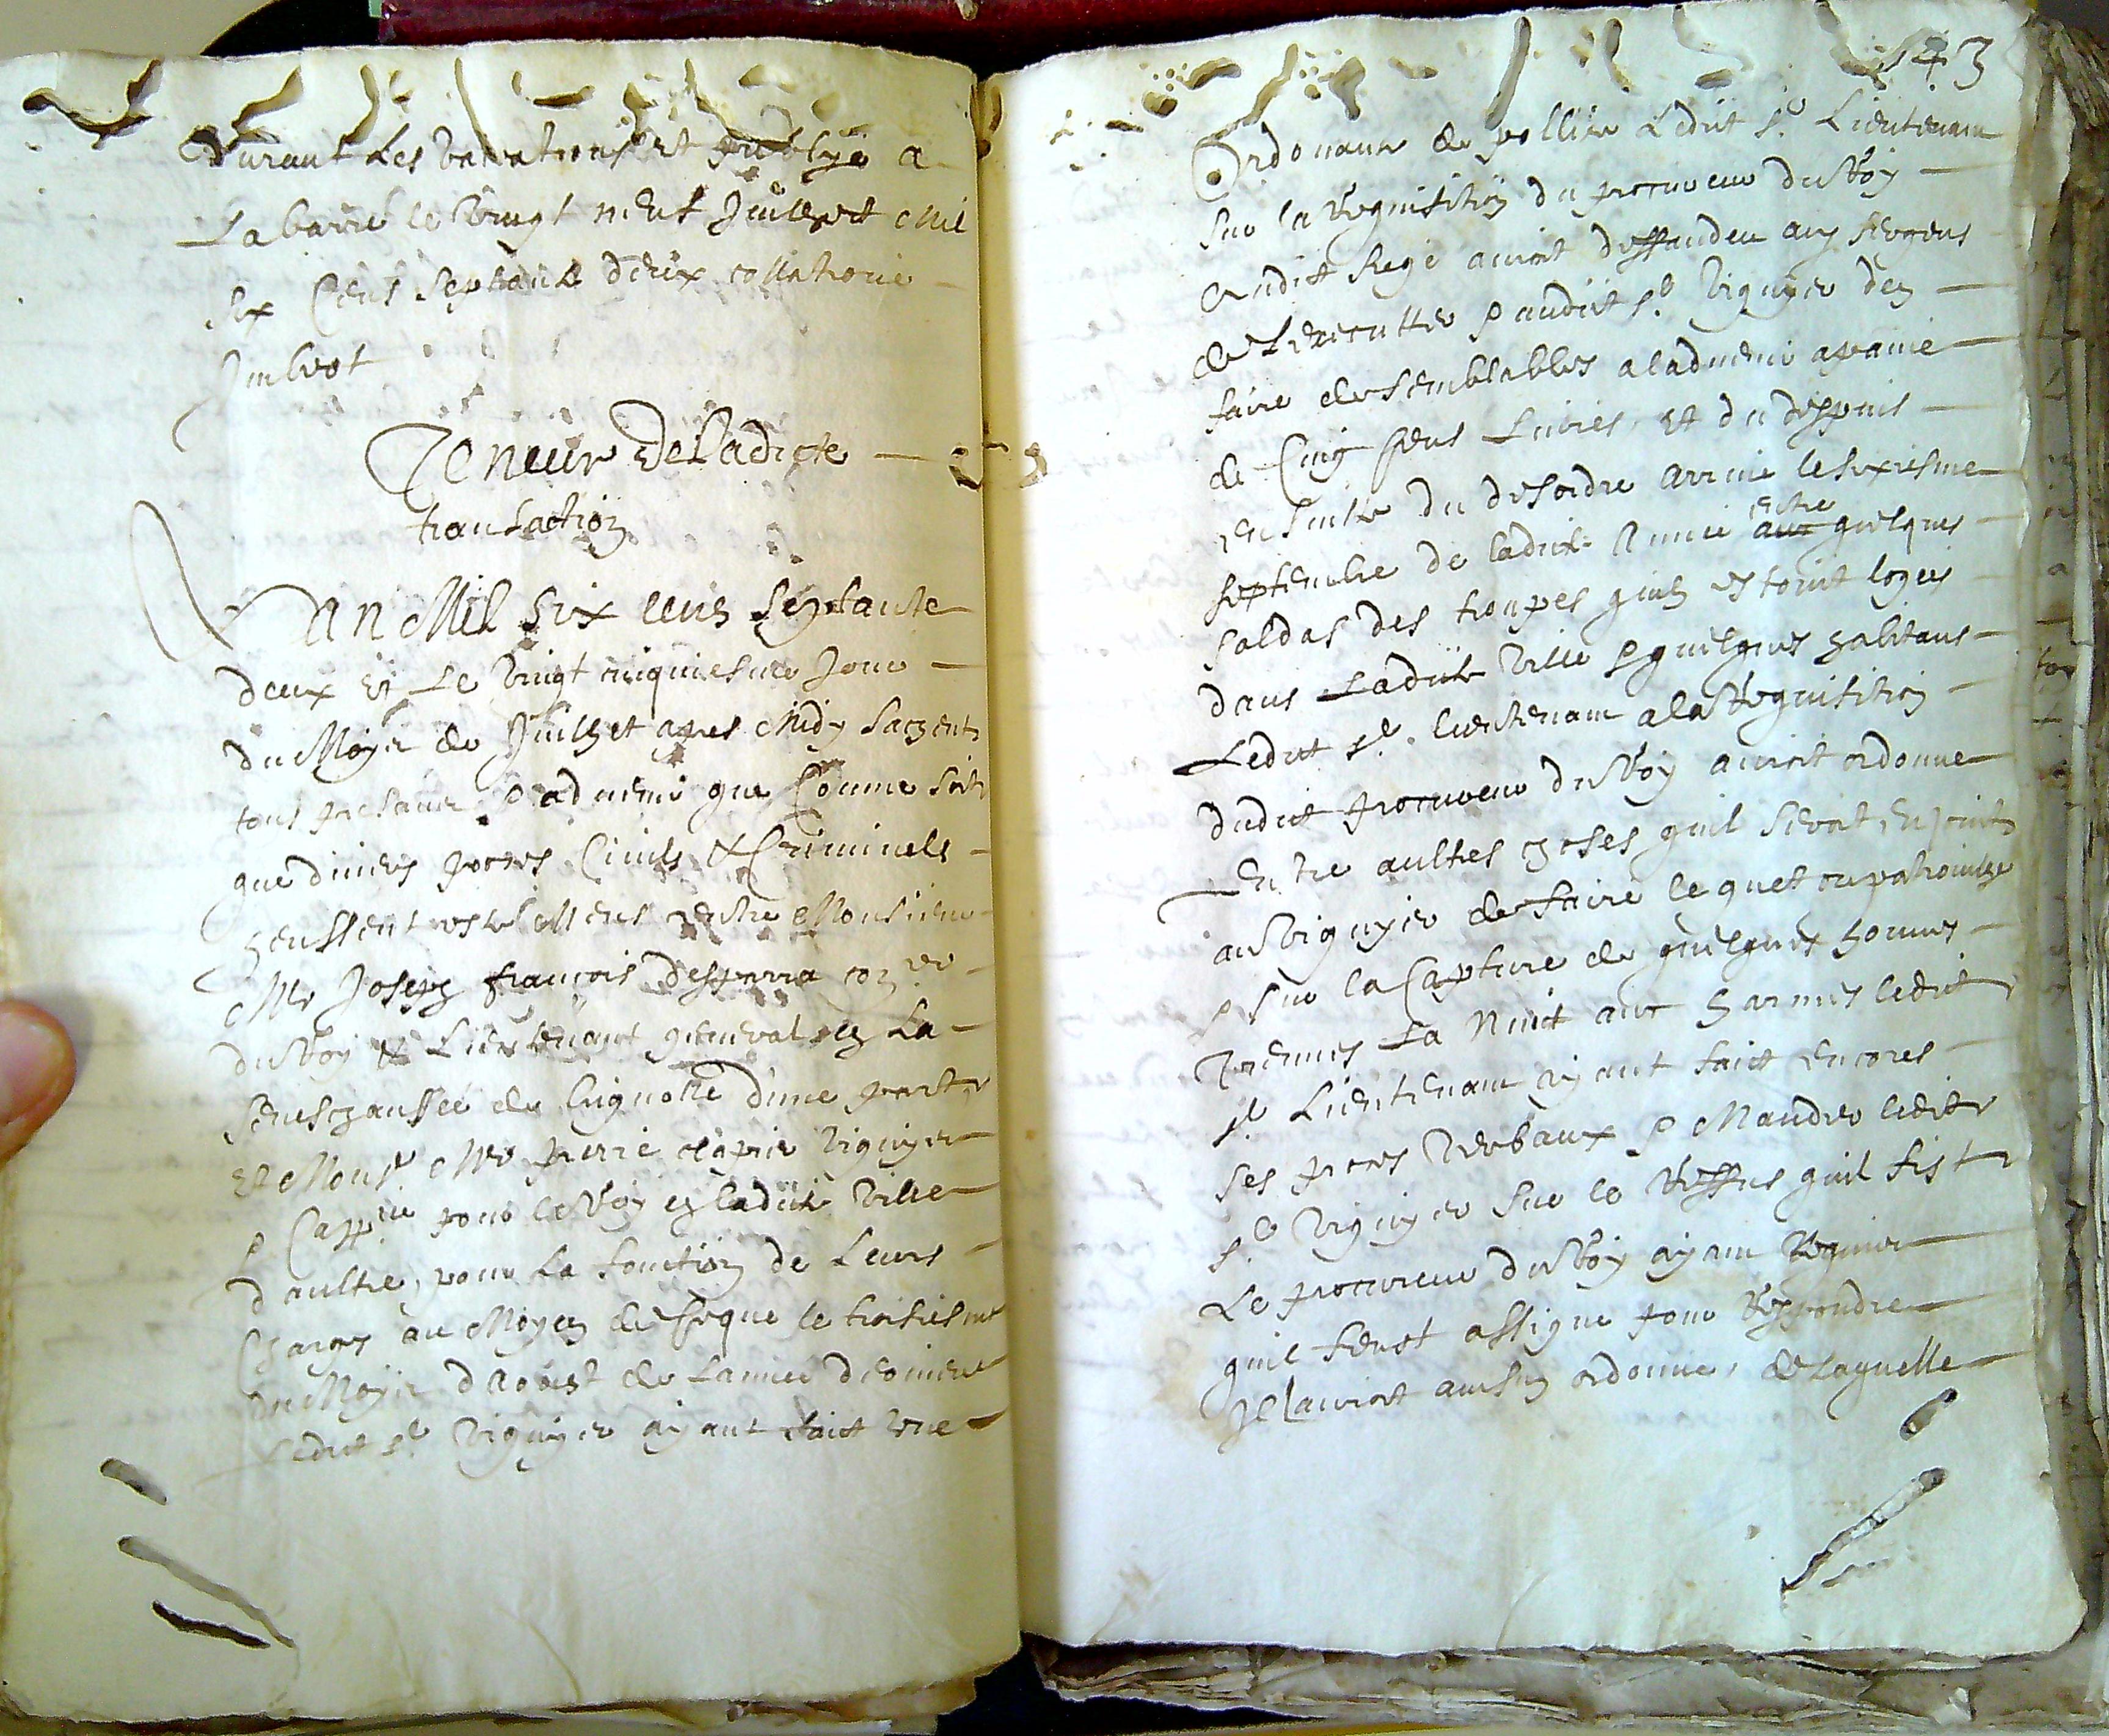 durant les vacations et publye a
La barre le vingt neuf Juillet mil
six cens septante deux collationé
Imbert
Teneur de Ladicte
transaction
L'an Mil six cens septante
deux et Le vingt cinquiesme Jour
du Moys de Juilhet apres Midy sachent
tous presans & advenir que Comme soit
que divers proces Civils & Criminels
heussent este entre Monsieur
Me Joseph françois desparra conr
du Roy & Lieutenant general en La
seneschaussée de brignolle d'une part
et Monsr Me pierre clapier viguyer
& Cappne pour le Roy en ladite ville
d'aultre, pour La fonction de Leurs
Charges au Moyen de se que le troisiesme
du Moys d'Aoust de L'année derniere
Ledit sr viguyer ayant faict une
143
Ordonance de pollice Ledit sr Lieutenant
sur la Requisition du procureur du Roy
Audict siege auroit deffandeu aux sergens
de L'executter & audit sr viguyer d'en
faire de semblables a l'advenir a paine
de Cinq Cens Livres, et du despuis
en suitte du desordre arrivé le sixiesme
septembre de ladite Année entre quelques
soldas des troupes quy estoint logees
dans Ladite ville & quelques habitans
Ledit sr lieutenant a la Requisition
dudit procureur du Roy auroit ordonne
Entre aultres choses quil seroit enjoint
au viguyer de faire le guet ou patrouilhe
& sur la Capture de quelques hommes
venues La Nuit avec harmes ledit
sr Lieutenant ayant faict encores
ses proces verbaux & Mander ledit
sr viguyer sur le Reffus quil fist
Le procureur du Roy ayant Requis
quil feust assigne pour Respondre
Il l'auroit ainsin ordonne, de Laquelle